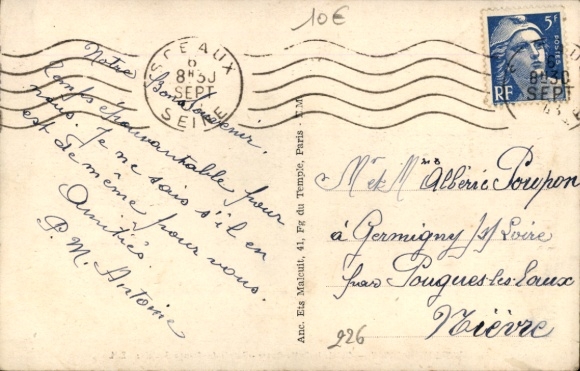 10€
SCEAUX
6
8H30
SEPT
SEINE
5F
POSTES
RF
8H30
SEPT
Notre Bon souvenir.
Temps épouvantable pour
nous. Je ne sais s'il en
est de même pour vous.
Amitiés.
P. M. Antoine
Anc. Ets Malcuit, 41, Fg du Temple, Paris - I.M.
Mr et Mme Albéric Poupon
à Germigny s/ Loire
par Pougues-les-Eaux
Nièvre
226